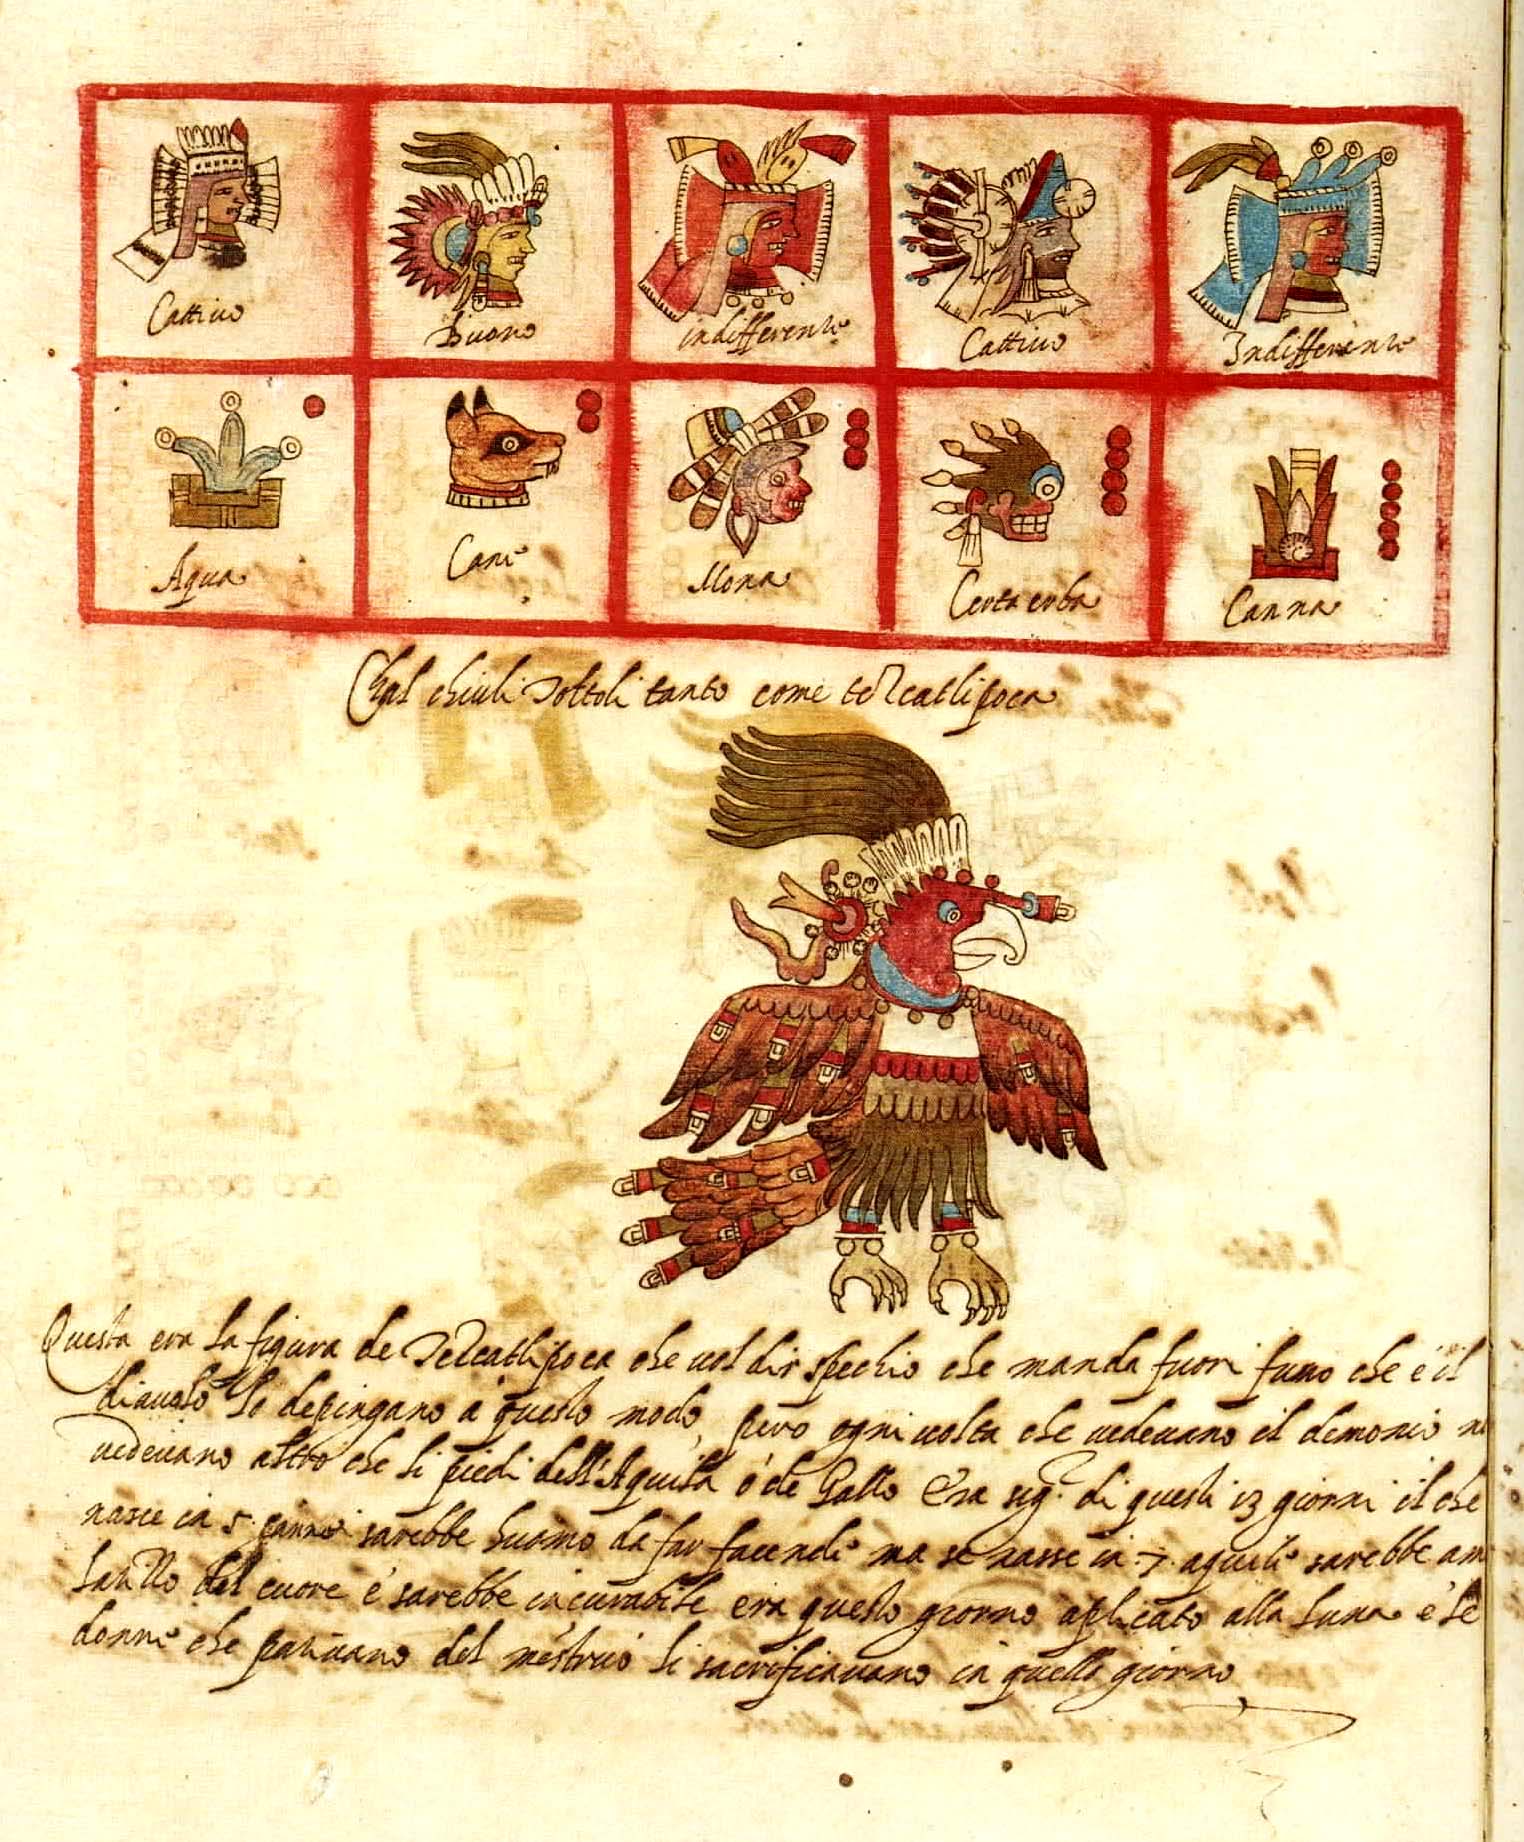 Cattivo
Buono
indifferente
Cattivo
Indifferente
Aqua
Cane
Mona
Certa erba
Canna
Chal chiuli tottoli tanto come tezcatlipoca
Questa era la figura de Tezcatlipoca che vol dir spechio che manda fuori fumo che è il
diavolo lo depingano à questo modo, pero ogni volta che vedevano il demonio n
vedevano altro che li piedi dell'Aquila o' de Gallo Era sig.r di questi 13 giorni il che
nasce in 5. canne sarebbe huomo da far facende ma se nasse in .7. aquile sarebbe am
del cuore e' sarebbe incurabile era questo giorno aplicato alla luna e' le
donne che pativano del mestruo li sacrificavano in quello giorno